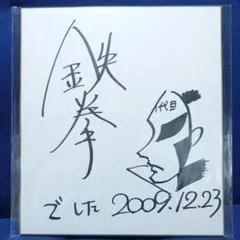 鉄拳
代目
でした 2009.12.23